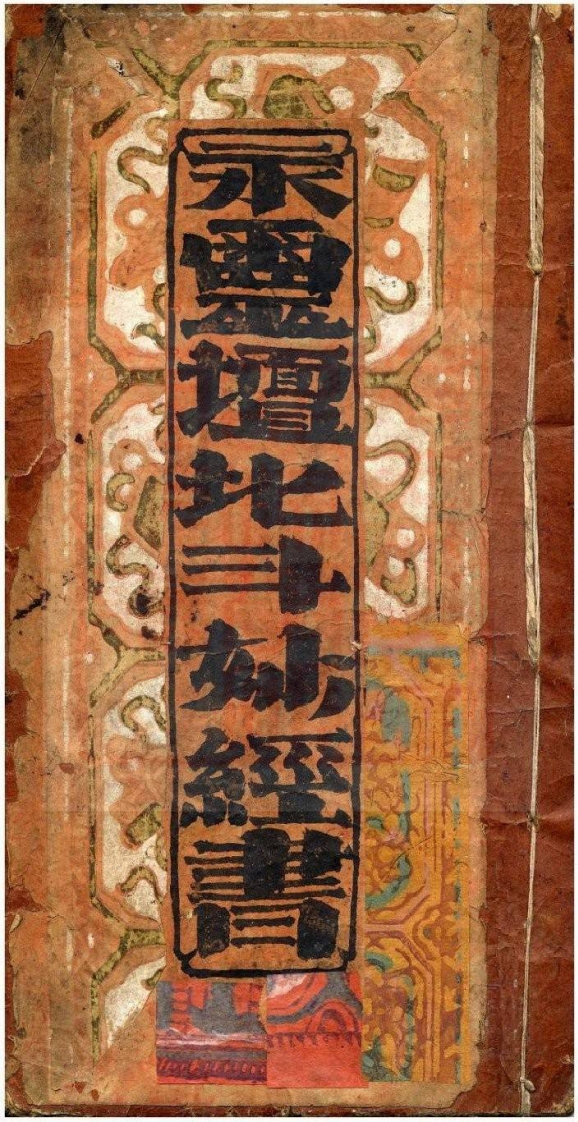 永靈壇北斗妙經書